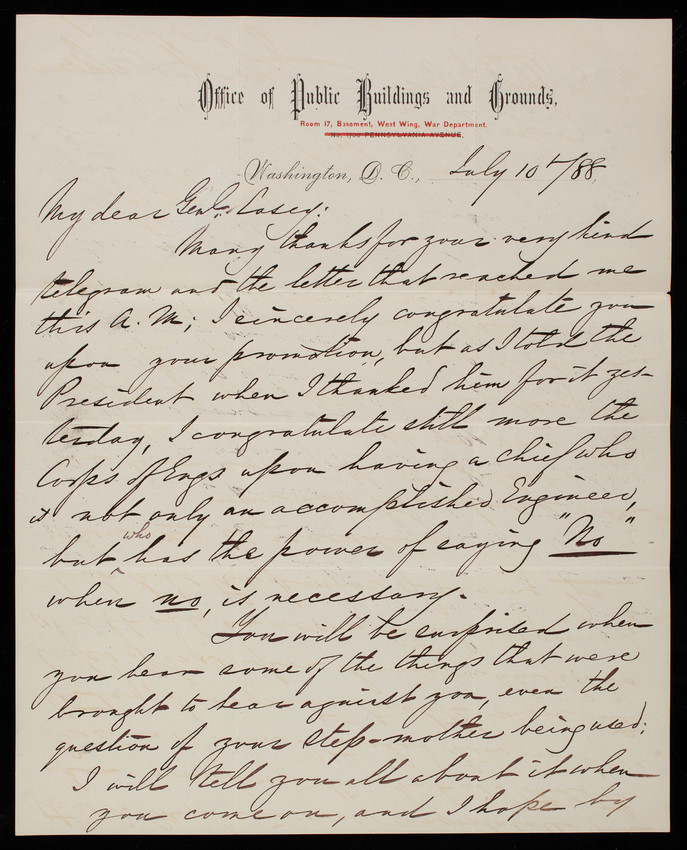 Office of Public Buildings and Grounds,
Room 17, Basement, West Wing, War Department.
PENNSYLVANIA AVENUE.
Washington, D. C., July 10th/88
My dear Genl. Casey:
Many thanks for your very kind
telegram and the letter that reached me
this A. M; I sincerely congratulate you
upon your promotion, but as I told the
President when I thanked him for it yes-
terday, I congratulate still more the
Corps of Engs upon having a chief who
is not only an accomplished Engineer,
but who has the power of saying "No"
when no, is necessary.
You will be surprised when
you hear some of the things that were
brought to bear against you, even the
question of your step-mother being used;
I will tell you all about it when
you come on, and I hope by